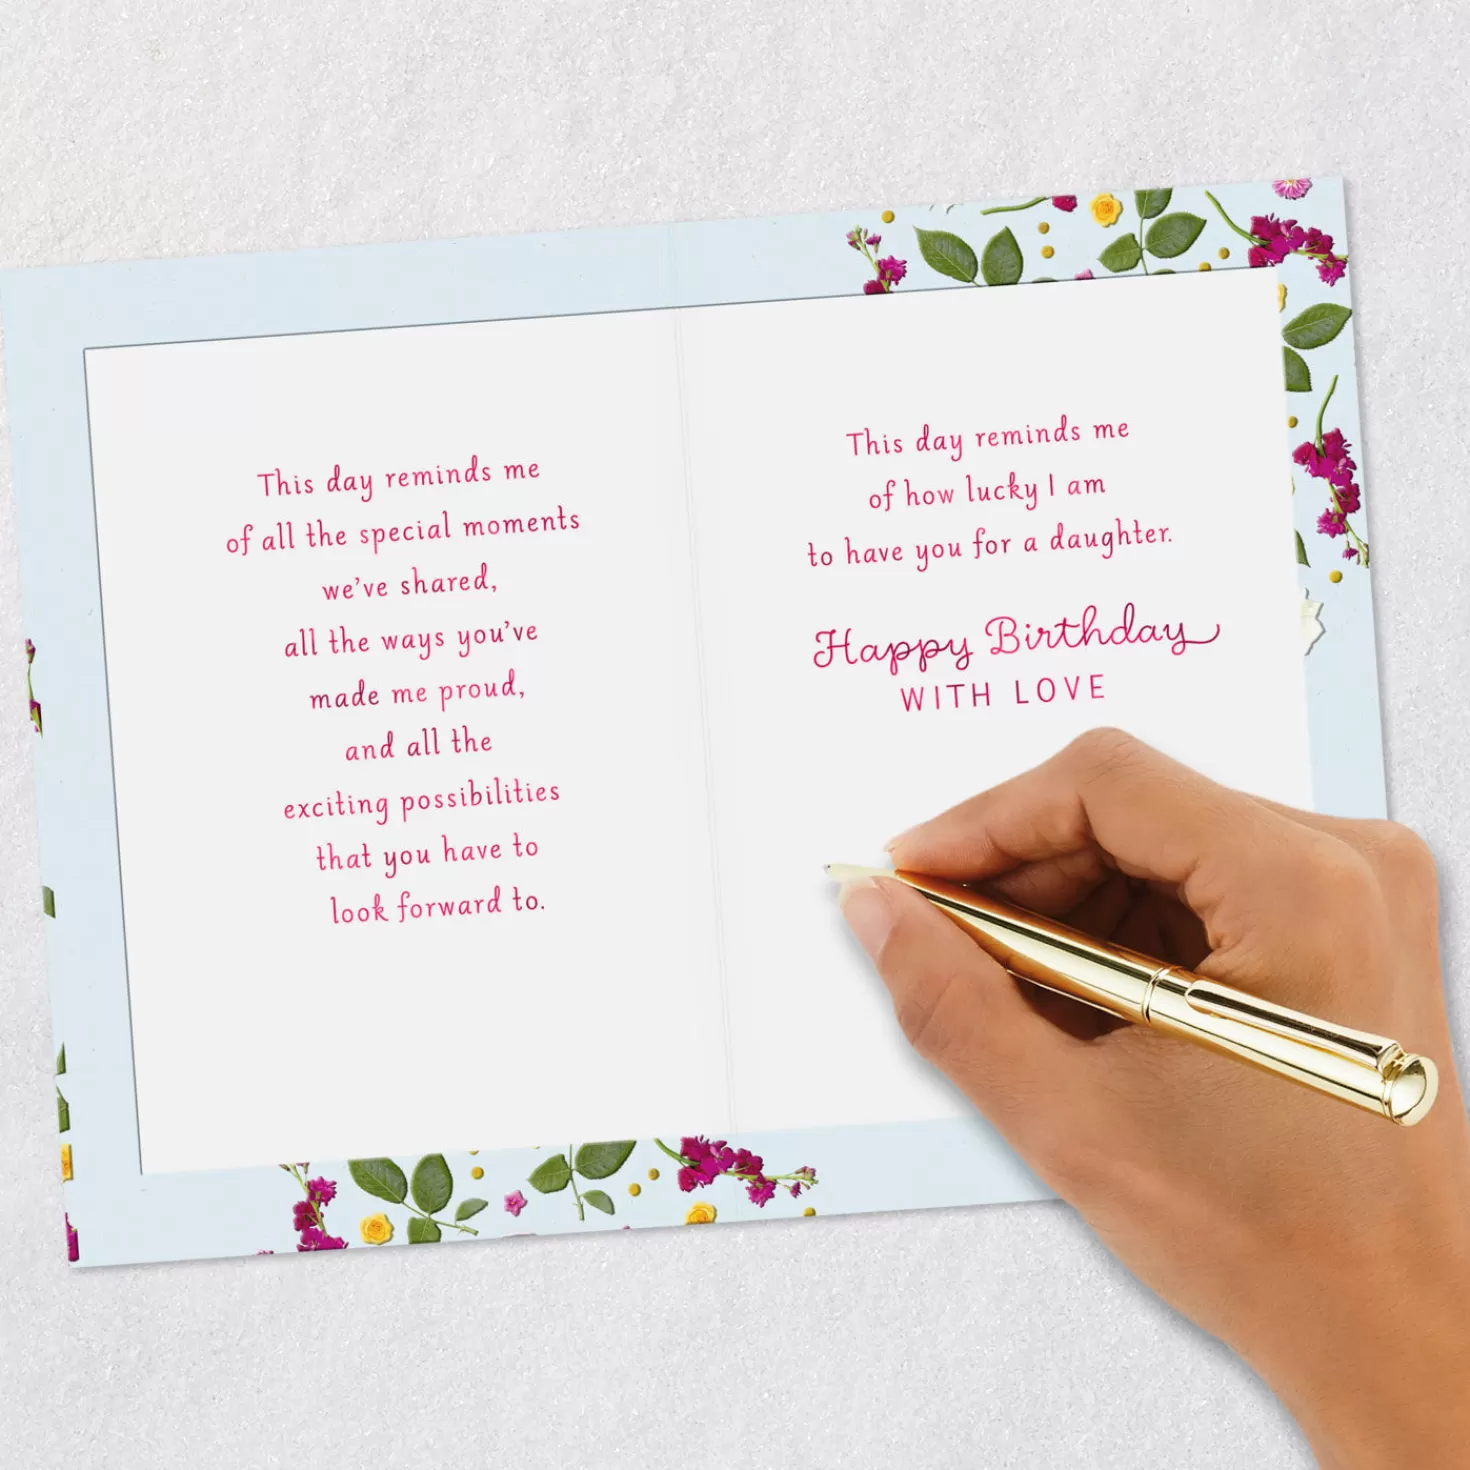 This day reminds me
of all the special moments
we've shared,
all the ways you've
made me proud,
and all the
exciting possibilities
that you have to
look forward to.
This day reminds me
of how lucky I am
to have you for a daughter.
Happy Birthday
WITH LOVE